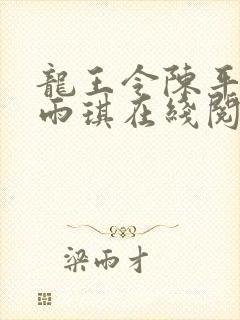 龍王令陳平
雨琪在綫閱
梁雨才